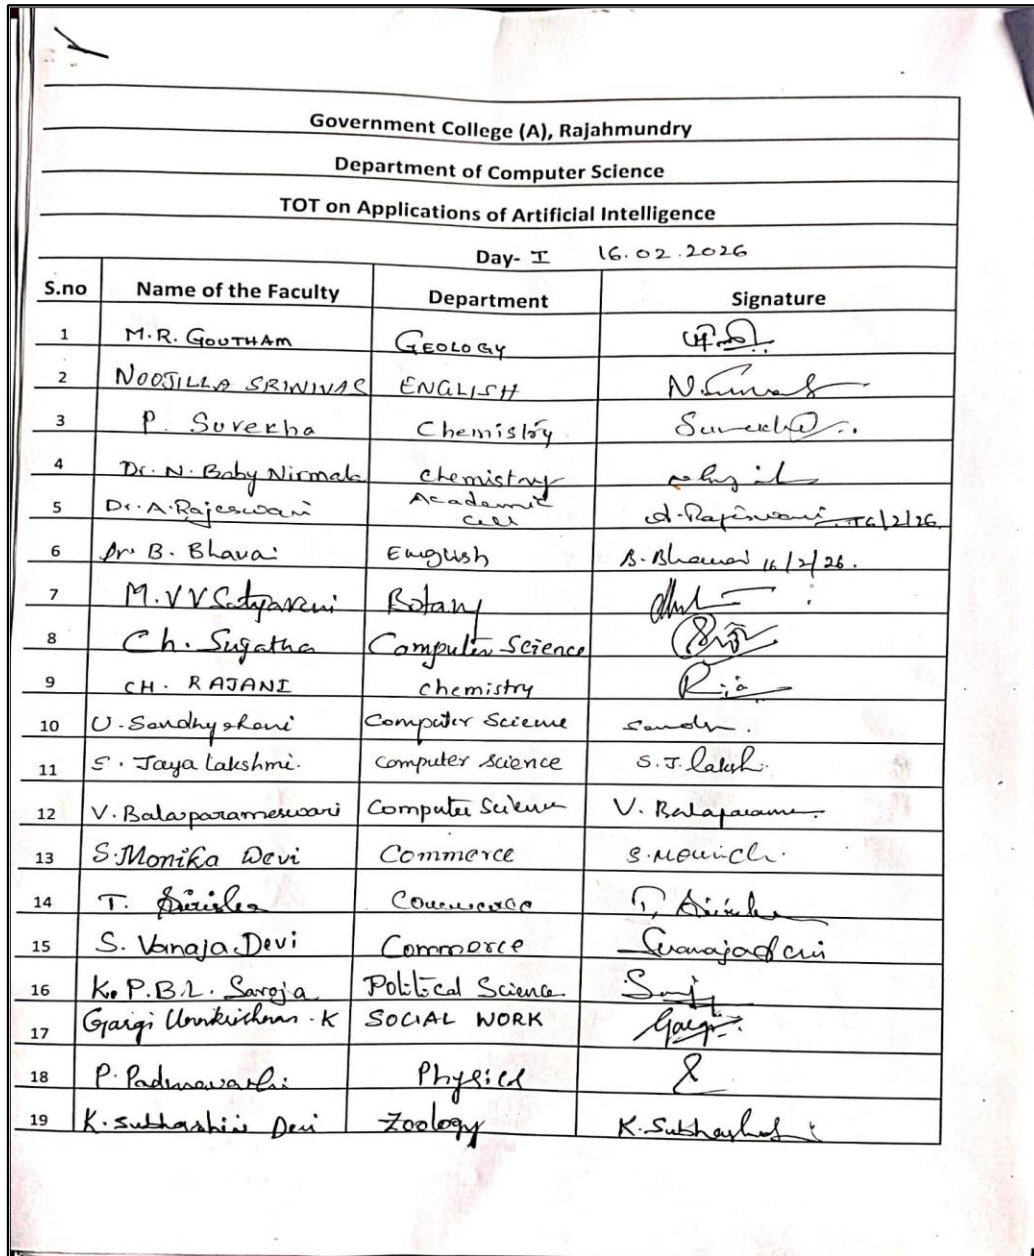 Government College (A), Rajahmundry
Department of Computer Science
TOT on Applications of Artificial Intelligence
Day- I 16.02.2026
S.no Name of the Faculty Department Signature
1 M.R. GOUTHAM GEOLOGY
2 NOOJILLA SRINIVAS ENGLISH
3 P. Surekha Chemistry Surekha
4 Dr. N. Baby Nirmala chemistry
5 Dr. A. Rajeswari Academic cell A. Rajeswari 16/2/26
6 Dr. B. English B. 16/2/26.
7 M. V V Satyaveni Botany
8 Ch. Sugatha Computer Science
9 CH. RAJANI chemistry
10 U. Sandhyarani Computer Science
11 S. Jaya Lakshmi. computer science S.J.
12 V. Balaparameswari Computer Science V.
13 S. Monika Devi Commerce
14 T. Sirisha Commerce T. Sirisha
15 S. Vanaja Devi Commerce
16 K. P.B.L. Saroja Political Science
17 Gargi Unnikrishnan. K SOCIAL WORK
18 P. Padmavathi Physics
19 K. Subhashini Devi Zoology